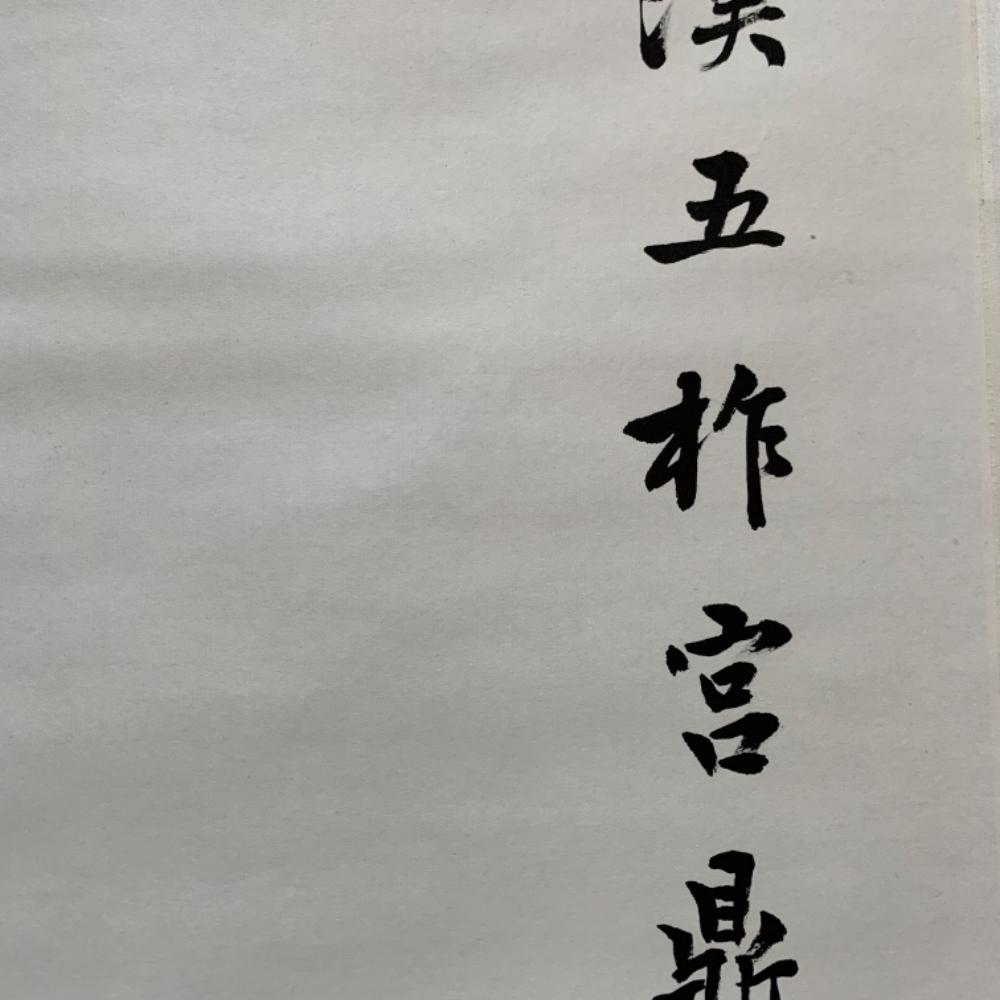 漢五柞宮鼎